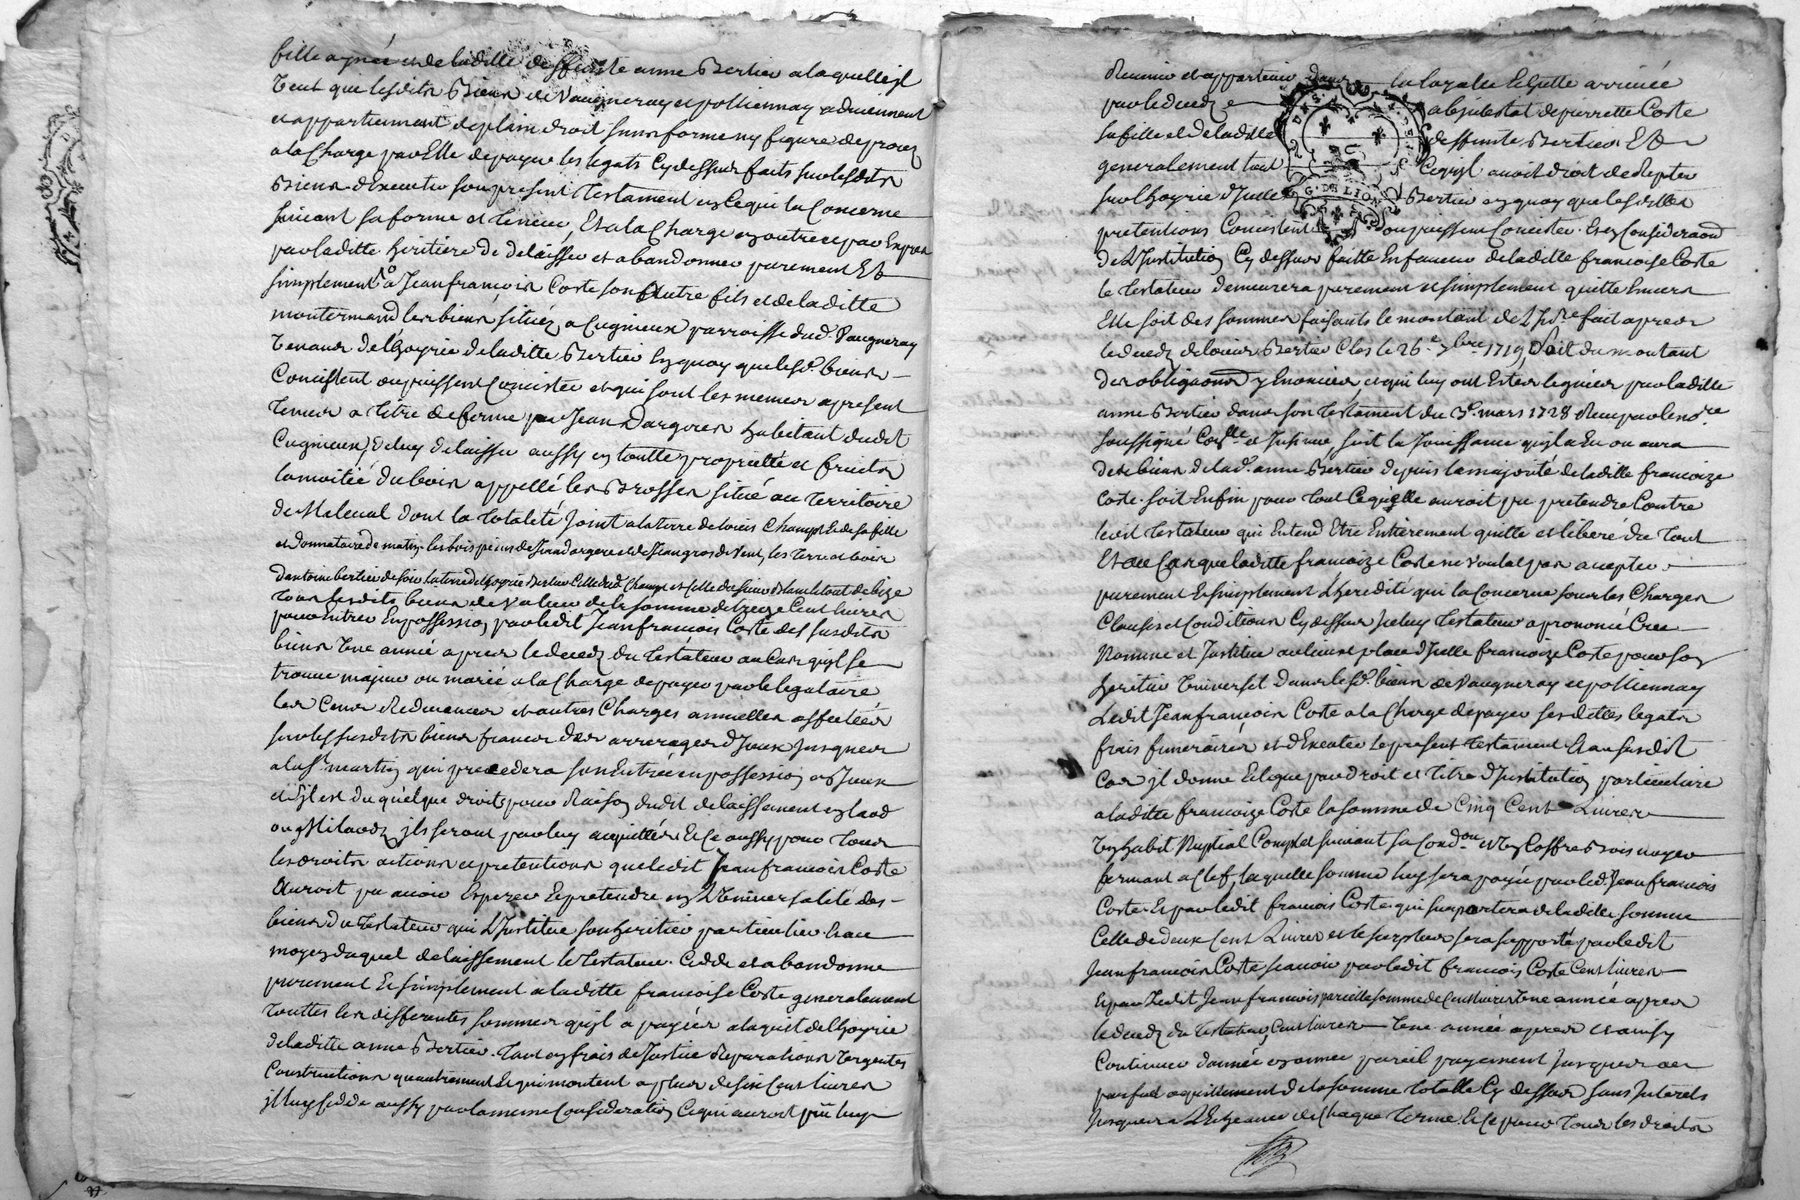 fille aynée et de laditte deffunte anne Bertier a laquelle il
veut que lesdits Biens de Vaugneray et pollionnay adviennent
et appartiennent de plein droit sans forme ny figure de procez
a la Charge par Elle de payer les legats Cy dessus faits sur lesdits
Biens d'Executer son present testament en ce qui la Concerne
suivant sa forme et teneur, Et a la Charge en outre par Expres
par laditte heritiere de delaisser et abandonner purement Et
simplement a Jean francois Coste son autre fils et de laditte
les biens situéz a Cugnieux parroisse dud. Vaugneray
venans de l'hoyrie de laditte Bertier En quoy que lesd. biens
Concistent ou puissent Concister et qui sont les memes a present
tenus a titre de ferme par Jean Dargeres habitant dudit
Cugnieux, de luy delaisser aussy en toutte propriété et fruits
la moitiée du bois appellé les Brosses situé au territoire
de Maleval dont la totalité joint a la terre de Champt Et de sa fille
et donnataire de matin les bois de Jean dargere et de Jean gros de vent, les terre et bois
d'antoine bertier de soir la terre de l'hoyrie Bertier Celle dud. Champt et Celle du sieur de bize
tous lesdits biens de valeur de la somme de treize Cent livres
pour Entrer En possession par ledit Jean francois Coste des susdits
biens Une année apres le decedz du testateur au Cas qu'il se
trouve majeur ou marié a la Charge de payer par le legataire
les Cens Redevances et autres Charges annuelles affectées
sur les susdits biens francs des arrerages d'Iceux jusques
a la St martin qui precedera son Entrée en possession en Iceux
et s'il est du quelque droits pour Raison dudit delaissement en laod
ou my laodz ils seront par luy acquittés Et ce aussy pour tous
les droits actions et pretentions que ledit Jean francois Coste
auroit pu avoir Esperer Et pretendre en L'Universalité des
biens du testateur qui L'Institue son heritier particulier Et au
moyen duquel delaissement le testateur Cedde et abandonne
purement Et simplement a laditte francoise Coste generalement
touttes les differentes sommes qu'il a payées a l'aquit de l'hoyrie
de laditte anne Bertier tant en frais de Justice Reparations Urgentes
Constructions qu'autrement Et qui montent a plus de six Cent livres
il luy cedde aussy par la meme Consideration Ce qui auroit pu luy
Revenir et appartenir dans la legale Echette arrivée
par le decedz abintestat de pierrette Coste
sa fille et de laditte deffunte Bertier Et
generalement tout Ce qu'il avoit droit de Repeter
sur l'hoyrie d'Icelle Bertier en quoy que lesdittes
pretentions Concistent ou puissent Concister. Et en Considération
de L'Institution Cy dessus faitte En faveur de laditte francoise Coste
le testateur demeurera purement et simplement quitte Envers
Elle soit des sommes faisants le montant de L'Inre fait apres
le decedz de Bertier Clos le 26e 7bre 1719 Soit du montant
des obligaons y Enoncées, et qui luy ont Esté leguées par laditte
anne Bertier dans son testament du 3e. mars 1728 Receu par le nore
soussigné Conlle et Insinué, soit la Jouissance qu'il a Eu ou aura
des biens de lad. anne Bertier depuis la majorité de laditte francoize
Coste. soit Enfin pour tout Ce qu'elle auroit pu pretendre Contre
ledit testateur qui Entend Etre Entierement quitte et liberé de tout
Et au Cas que laditte francoize Coste ne voulut pas accepter
purement Et simplement L'heredité qui la Concerne sous les Charges
Clauses et Conditions Cy dessus Iceluy testateur a prononcé Crée
Nomme et Institue au lieu et place d'Icelle francoize Coste pour son
heritier Universel dans lesd. biens de Vaugneray et pollionnay
Ledit Jean francois Coste a la Charge de payer sesdittes legats
frais funeraires et d'Executer le present testament Et au susdit
Cas il donne Et legue par droit et titre d'Institution particuliere
a laditte francoize Coste la somme de Cinq Cent Livres
Un habit Nuptial Complet suivant sa Condon et Un Coffre Bois noyer
fermant a Clef, laquelle somme luy sera payée par led. Jean francois
Coste Et par ledit francois Coste qui suportera de laditte somme
Celle de deux Cent Livres et le surplus sera suporté par ledit
Jean francois Coste scavoir par ledit francois Coste Cent livres
Et par Ledit Jean francois pareille somme de Cent livres Une année apres
le decedz du testateur, Cent livres Une année apres Et ainsy
Continuer d'année en année pareil payement jusques au
parfait acquittement de la somme totalle Cy dessus sans Interets
jusques a L'Echeance de Chaque terme. Et ce pour tous les droits
G. DE LION